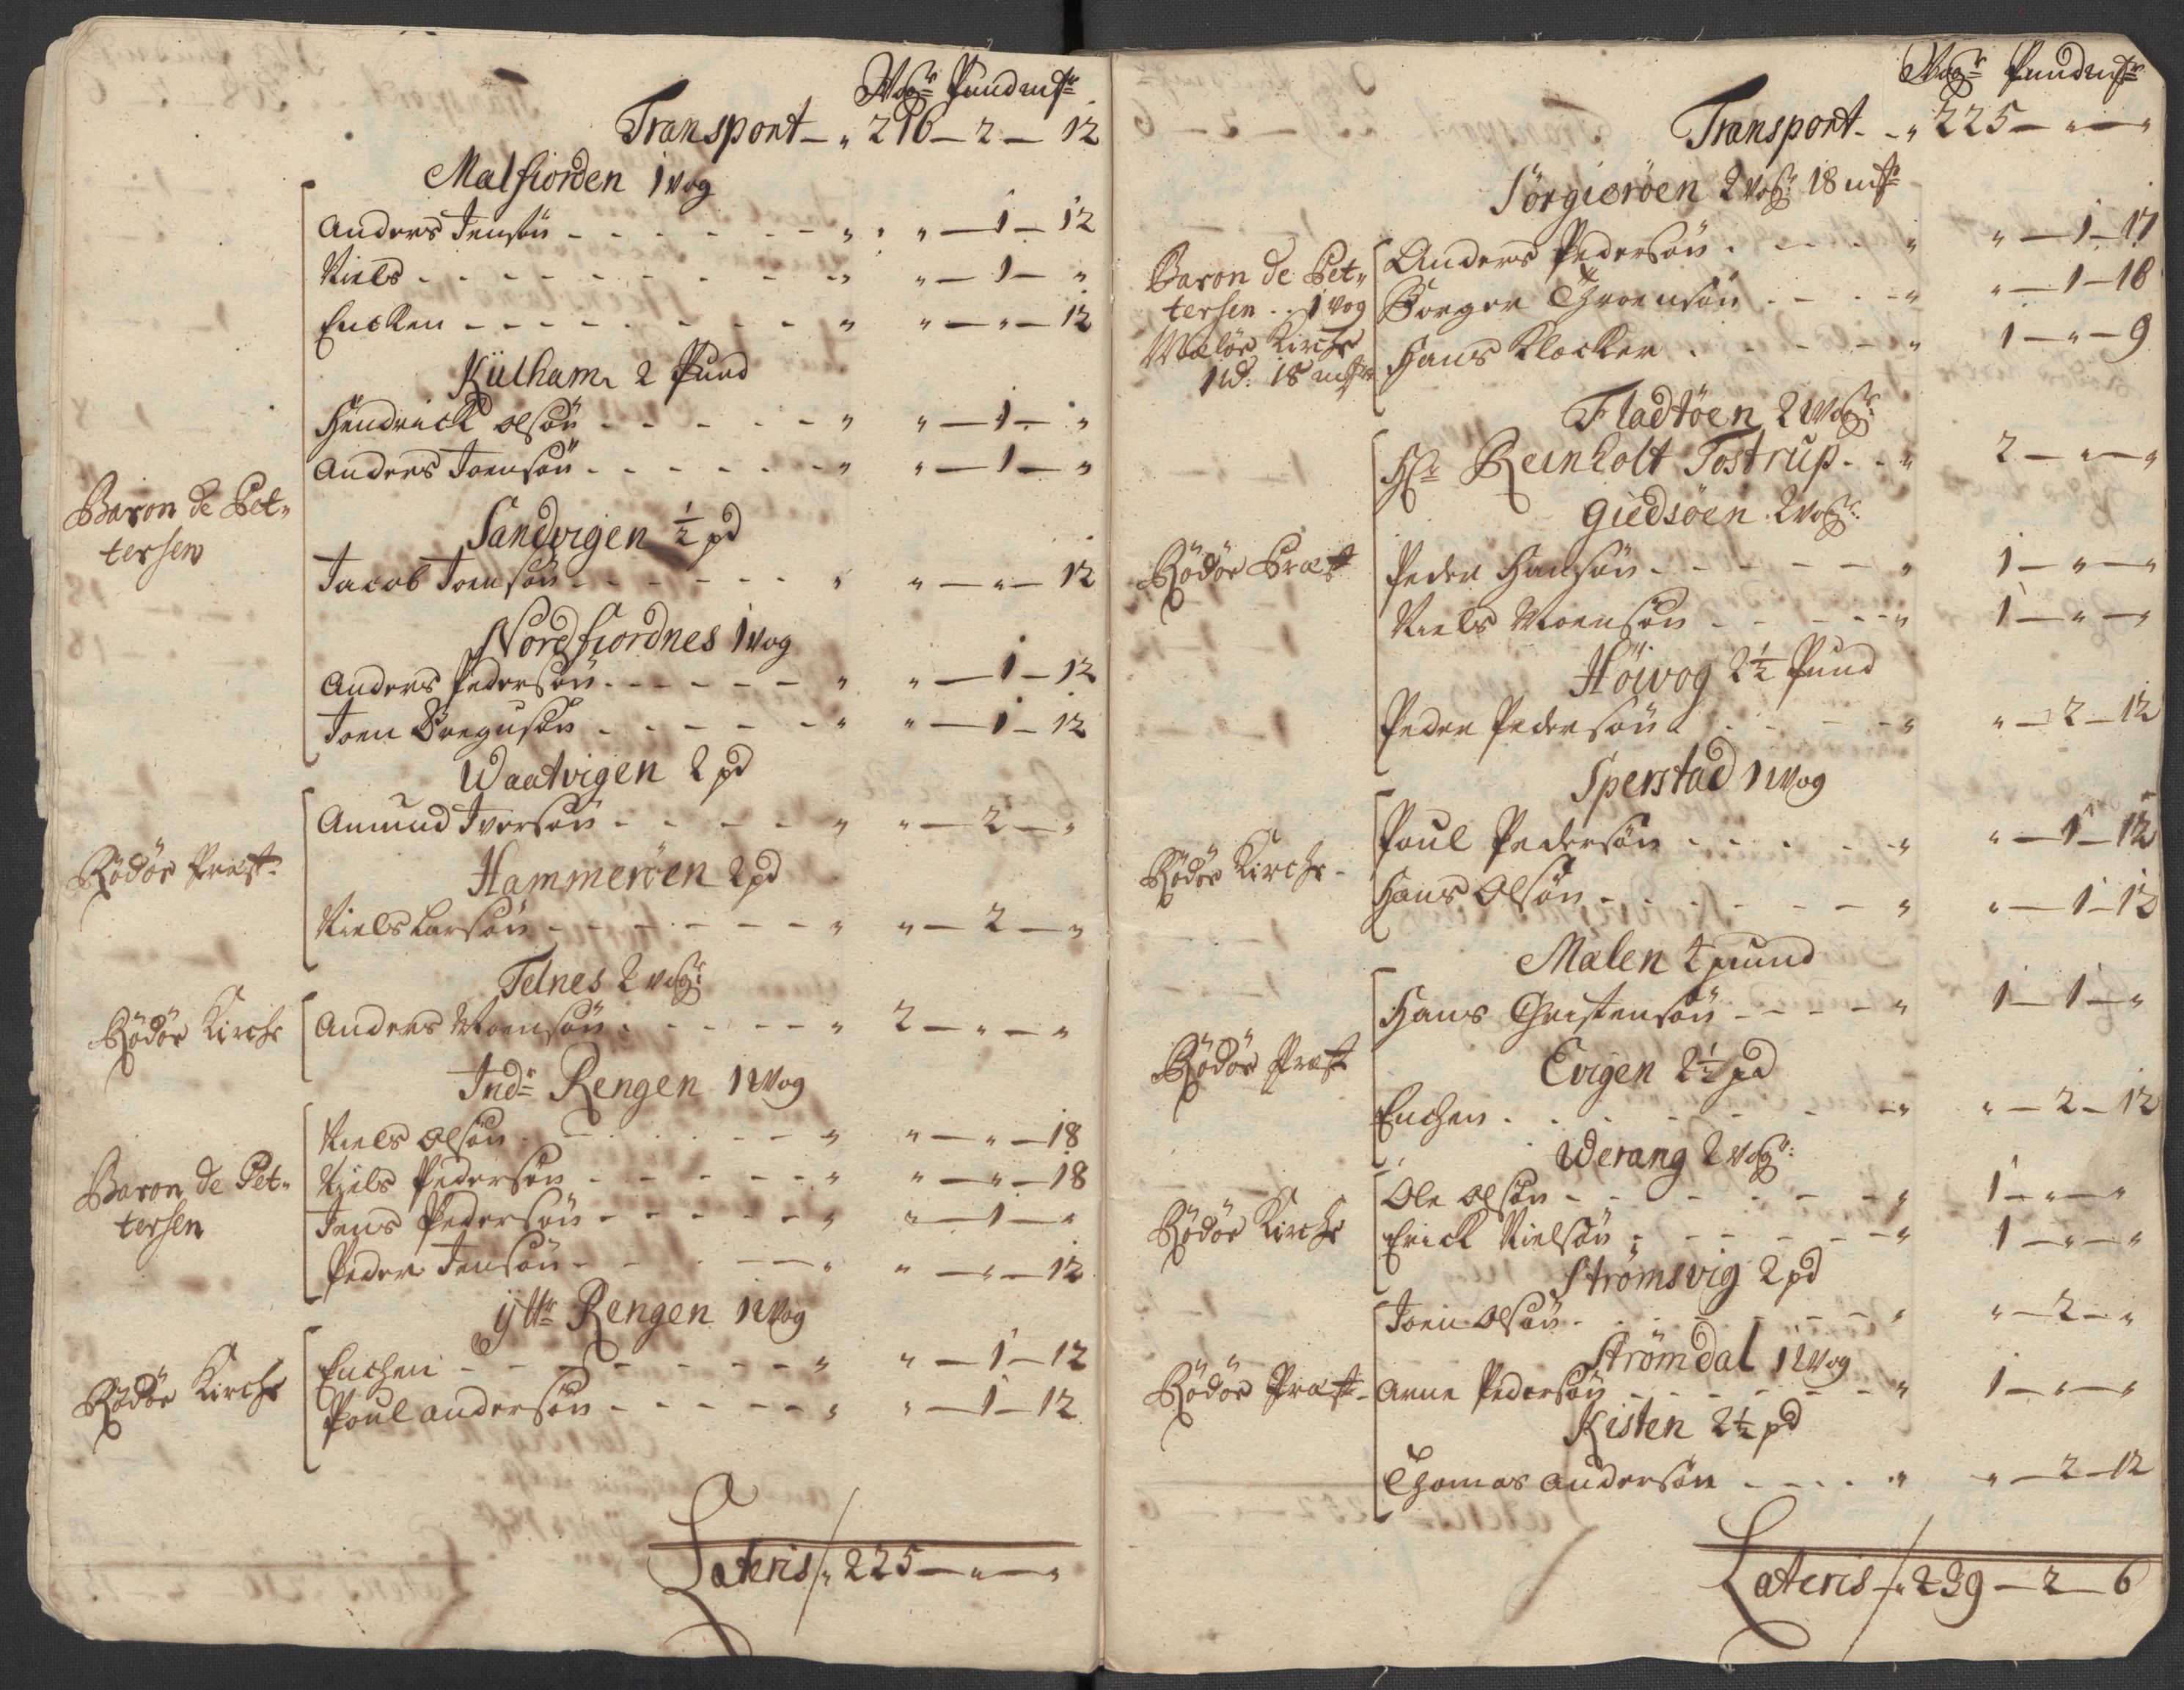 Wogr Pund mkr
Transport – „ 216 – 2 – 12
Malfiorden 1 Wog
Anders Jensøn - - - - - - „ „ – 1 – 12
Niels - - - - - - - - „ „ – 1 – „
Encken - - - - - - - „ „ – „ – 12
Külhamr 2 Pund
Hendrick Olsøn - - - - - „ „ – 1 – „
Anders Joensøn - - - - - - „ „ – 1 – „
Baron de Pet„
tersen
Sandvigen ½ pd
Jacob Joensøn - - - - - - „ „ – „ – 12
Nordfiordnes 1 Wog
Anders Pedersøn - - - - - „ „ – 1 – 12
Joen - - - - - „ „ – 1 – 12
Waatvigen 2 pd
Amund Iversøn - - - - - „ „ – 2 – „
Rödöe Præst
Hammerøen 2 pd
Niels Larsøn - - - - - - - „ „ – 2 – „
Telnes 2 Wogr:
Rödöe Kirche Anders Moensøn - - - - - - „ 2 – „ – „
Indr Rengen 1 Wog
Niels Olsøn - - - - - - - „ „ – „ – 18
Baron de Pet„
tersen
Niels Pedersøn - - - - - - „ „ – „ – 18
Jens Pedersøn - - - - - - „ „ – 1 – „
Peder Jensøn - - - - - „ „ – „ – 12
ytter Rengen 1 Wog
Rödöe Kirche
Enchen - - - - - - - - „ „ – 1 – 12
Poul Andersøn - - - - - - „ „ – 1 – 12
Lateris / „ 225 – „ – „
Wogr Pund mkr
Transport - - „ 225 – „ – „
Sørgierøen 2 Wogr: 18 mkr
Baron de Pet„
tersen . . 1 Wog
Meløe Kirche
1 W. 18 mkr
Anders Pedersøn - - - - „ „ – 1 – 17
Børger - - - - „ „ – 1 – 16
Hans Klocker - - - - - „ 1 – „ – 9
Fladtøen 2 Wogr:
Hr Reinholt Tostrup - - „ 2 – „ – „
Giedsøen 2 Wogr:
Rödöe Præst
Peder Hansøn - - - - - - „ 1 – „ – „
Niels Moensøn - - - - - - „ 1 – „ – „
Höivog 2½ Pund
Peder Pedersøn - - - - „ „ – 2 – 12
Sperstad 1 Wog
Poul Pedersøn - - - - - - „ „ – 1 – 12
Rödöe Kirche -
Hans Olsøn - - - - - - - „ „ – 1 – 12
Malen 4 pund
Hans Christensøn - - - - - „ 1 – 1 – „
Rödöe Præst
Evigen 2½ pd
Enchen - - - - - - - - „ „ – 2 – 12
Werang 2 Wogr:
Rödöe Kirche
Ole Olsøn - - - - - - - „ 1 – „ – „
Erick Nielsøn - - - - - - - „ 1 – „ – „
Strømsvig 2 pd
Joen Olsøn - - - - - - - „ „ – 2 – „
Strømdal 1 Wog
Rödöe Præst - Arne Pedersøn - - - - - - - „ 1 – „ – „
Kisten 2½ pd
Thomas Andersøn - - - - „ „ – 2 – 12
Lateris – „ 239 – 2 – 6